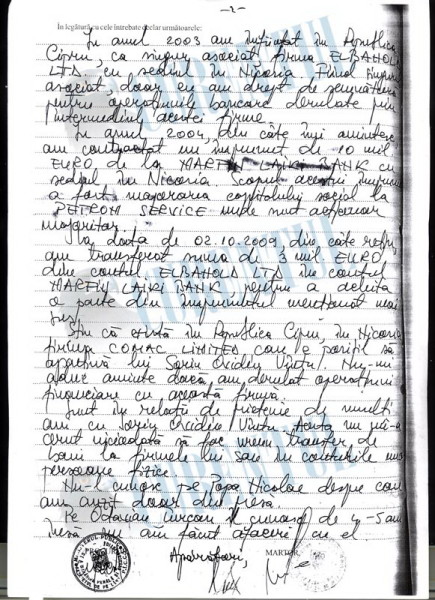 - 2 -
În legătură cu cele întrebate declar următoarele:
În anul 2003 am înființat în Republica
Cipru, ca unic asociat firma ELBAHOLD
LTD. cu sediul în Nicosia. Fiind unic
asociat, doar eu am drept de semnătură
pentru operațiunile bancare derulate prin
intermediul acestei firme.
În anul 2004, din câte îmi amintesc
am contractat un împrumut de 10 mil
EURO de la MARFIN LAIKI BANK cu
sediul în Nicosia. Scopul acestui împrumut
a fost majorarea capitolului social la
PETROM SERVICE unde sunt acționar
majoritar.
La data de 02.10.2009, din câte rețin,
am transferat suma de 3 mil EURO
din contul ELBAHOLD LTD în contul
MARTIN LAIKI BANK pentru a achita
o parte din împrumutul menționat mai
sus.
Știu că există în Republica Cipru, în Nicosia
firma COMAC LIMITED care e posibil să
aparțină lui Sorin Ovidiu Vîntu. Nu-mi
aduc aminte dacă am derulat operațiuni
financiare cu această firmă.
Sunt în relații de prietenie de mulți
ani cu Sorin Ovidiu Vîntu. Acesta nu mi-a
cerut niciodată să fac vreun transfer de
bani la firmele lui sau în conturile unor
persoane fizice.
Nu-l cunosc pe Popa Nicolae despre care
am auzit doar din presă.
Pe Octavian Țurcan îl cunosc de 4-5 ani
însă nu am făcut afaceri cu el
Apărător,
MARTOR,
CURENTUL
CURENTUL
CURENTUL